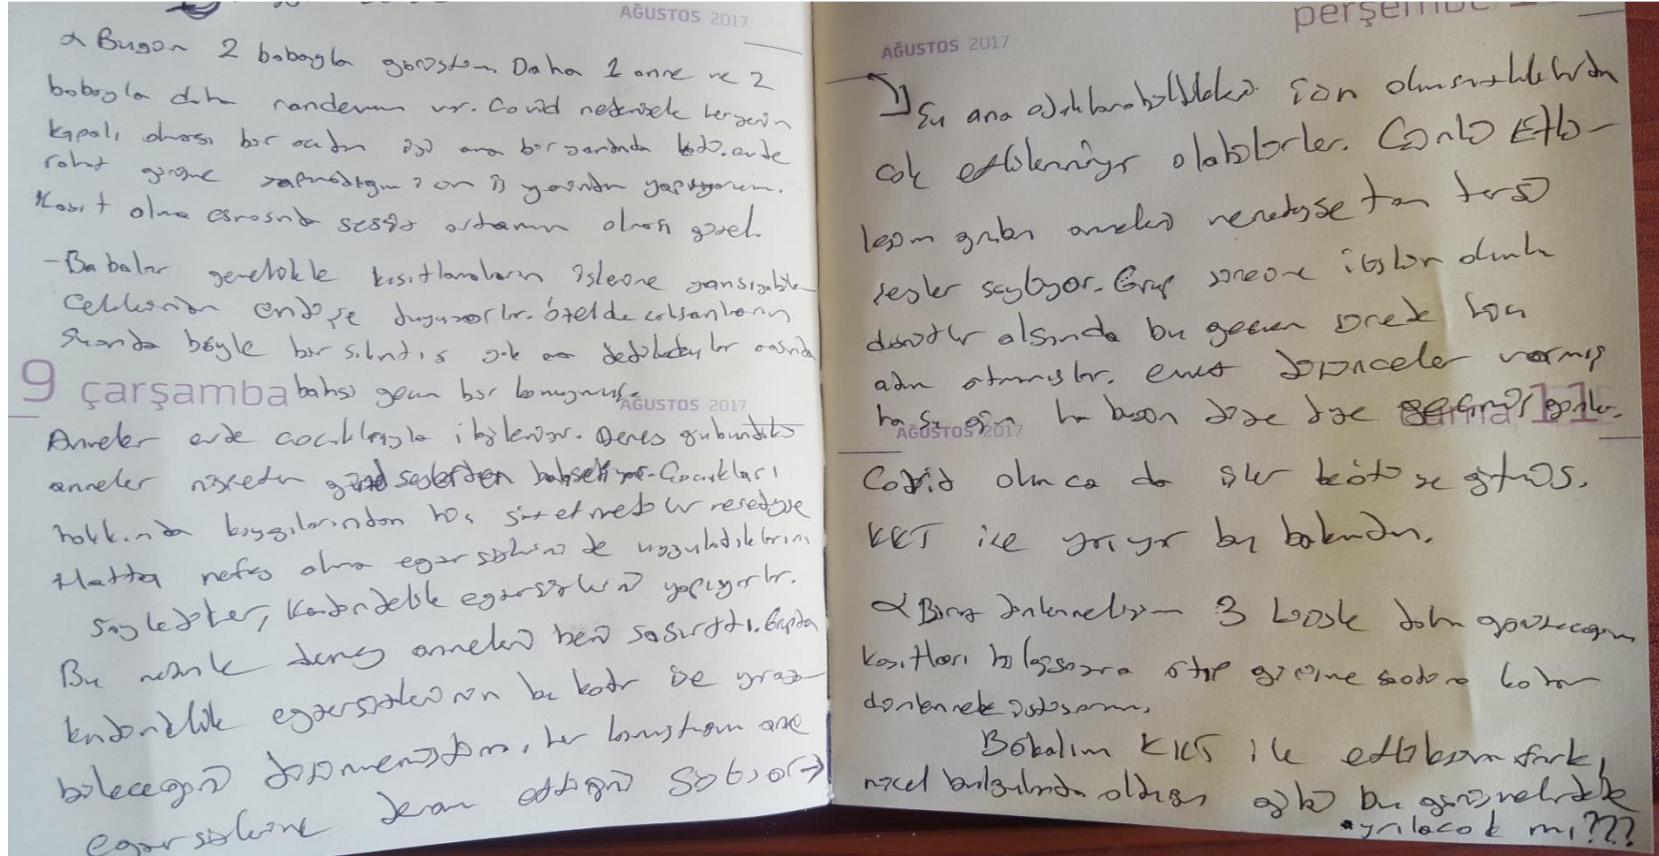 AĞUSTOS 2017
Bugün 2 babayla görüştüm. Daha 1 anne ve 2
babayla daha randevum var. Covid nedeniyle heryerin
kapalı olması bir açıdan iyi ama bir yandan kötü. evde
rahat görüşme yapıyorum.
Kayıt olma esnasında sessiz ortamın olması güzel.
-Babalar genellikle kısıtlamaların işlerine
endişe duyuyorlar. özelde çalışanların
Şuanda böyle bir sıkıntı yok ama
9 çarşamba bahsi geçen bir konuymuş.
AĞUSTOS 2017
Anneler evde çocuklarıyla ilgileniyor. Deney grubundaki
anneler güzel şeylerden bahsediyor. Çocukları
hakkında kaygılarından hiç söz etmediler neredeyse
Hatta nefes alma egzersizlerini de uyguladıklarını
söylediler, Kendindelik egzersizlerini yapıyorlar.
Bu deney anneleri beni şaşırttı. Grupta
kendindelik egzersizlerinin bu kadar işe yaraya
bileceğini düşünmemiştim, her konuştuğum anne
egzersizlerine devam ettiğini söylüyor →
perşembe
AĞUSTOS 2017
Şu ana odaklanabildikleri için olumsuzluklardan
çok etkilenmiyor olabilirler. Çünkü Etki-
leşim grubu anneleri neredeyse tam tersi
şeyler söylüyor. Grup sürecine ilişkin olumlu
dönütler alsamda bu geçen sürede hiç
adım atmamışlar. evet düşünceler varmış
ha bugün düşe düşe geçirmiş günler.
cuma 11
AĞUSTOS 2017
Covid olunca da işler kötüye gitmiş.
KKT işe yarıyor bu bakımdan.
Biraz dinlenmeliyim 3 kişiyle daha görüşeceğim
kayıtları bilgisayara atıp görüşme saatine kadar
dinlenmek istiyorum.
Bakalım KKT ile etkileşim farkı,
nicel bulgularda olduğu gibi bu görüşmelerde de
ayrılacak mı???